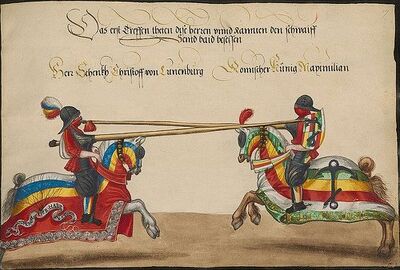 Das erst Treffen theten dise herren vnnd kamen den schwaiff
Send baid besessen
Herr Schenkh Christoff von Limenburg
Romischer Künig Maximilian